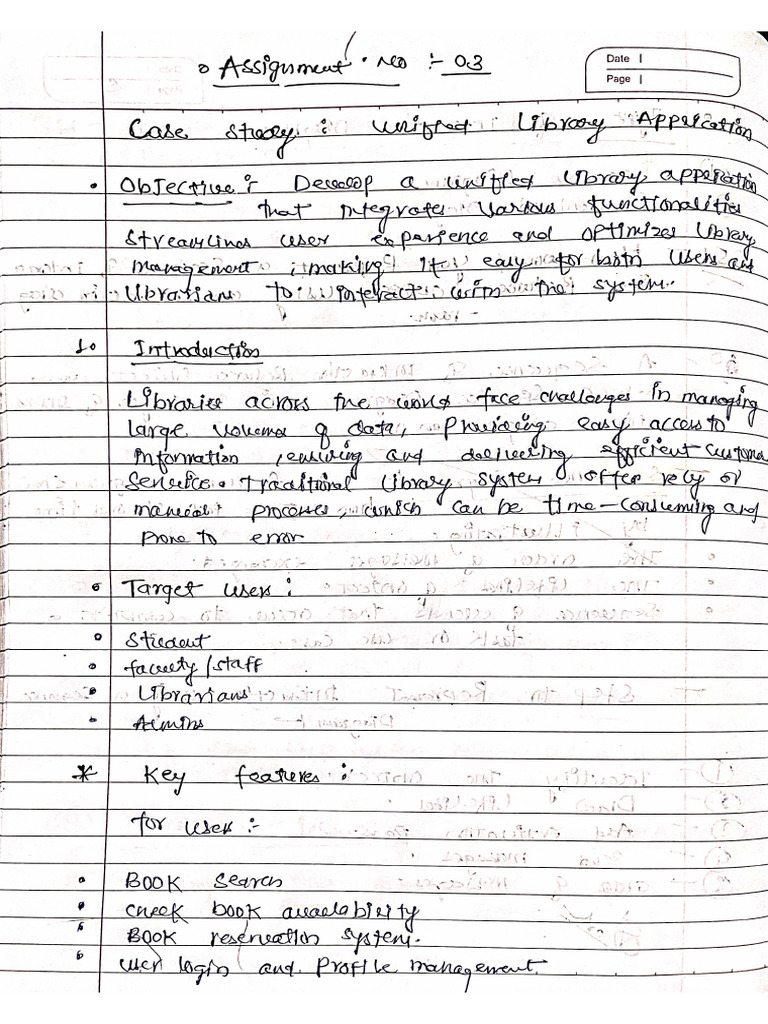 Assignment No :- 03
Date
Page
Case Study : Unified Library Application
• Objective : Develop a unified library application
that integrates various functionalities
streamlines user experience and optimizes library
management, making it easy for both users and
librarians to interact with the system.
1. Introduction
Libraries across the world face challenges in managing
large volume of data, providing easy access to
information, ensuring and delivering efficient custome
service. traditional library system offer rely or
manual processes, which can be time-consuming and
prone to error
• Target user :
• student
• faculty/staff
• librarians
• Admins
* Key features :
for user :-
• Book search
• check book availability
• Book reservation system.
• user login and profile management.